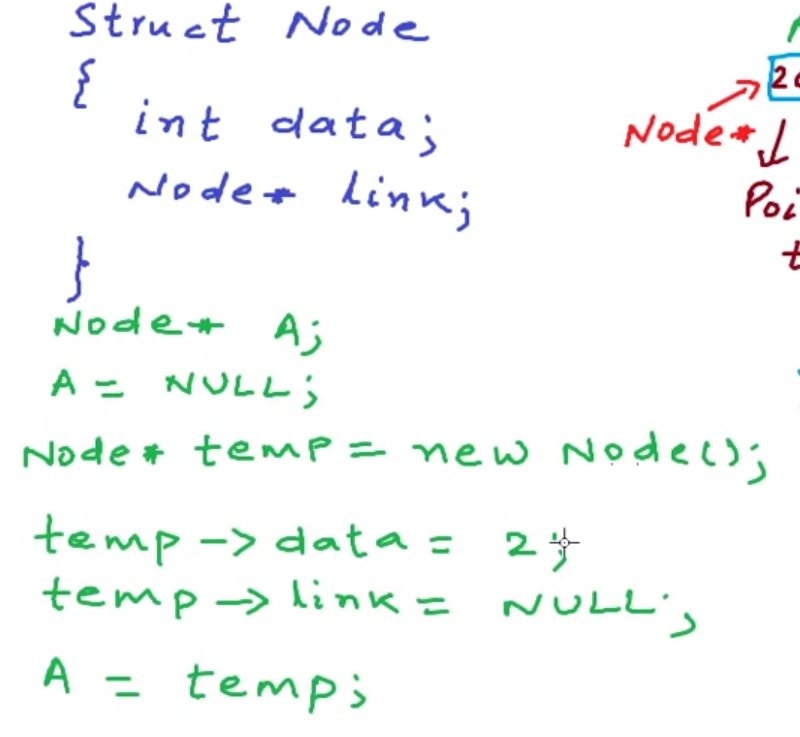 Struct Node
{
int data;
Node* link;
}
Node* A;
A = NULL;
Node* temp = new Node();
temp -> data = 2;
temp -> link = NULL;
A = temp;
Node*